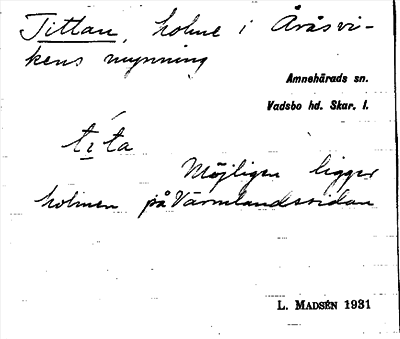 Tittan, holme i Åråsvi-
kens mynning
Amnehärads sn.
Vadsbo hd. Skar. l.
tı̀ta
Möjligen ligger
holmen på Värmlandssidan
L. MADSÉN 1931